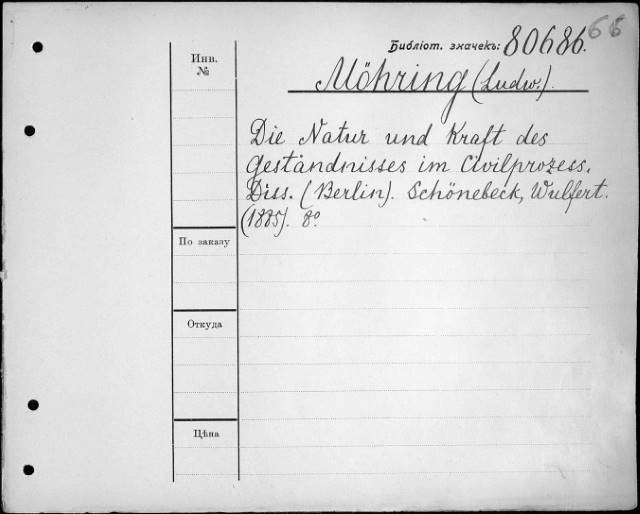 66
Библіот. значекъ: 80686.
Инв.
№
Möhring (Ludw.).
Die Natur und Kraft des
Geständnisses im Civilprozess.
Diss. (Berlin). Schönebeck, Wulfert.
(1885). 8°.
По заказу
Откуда
Цѣна